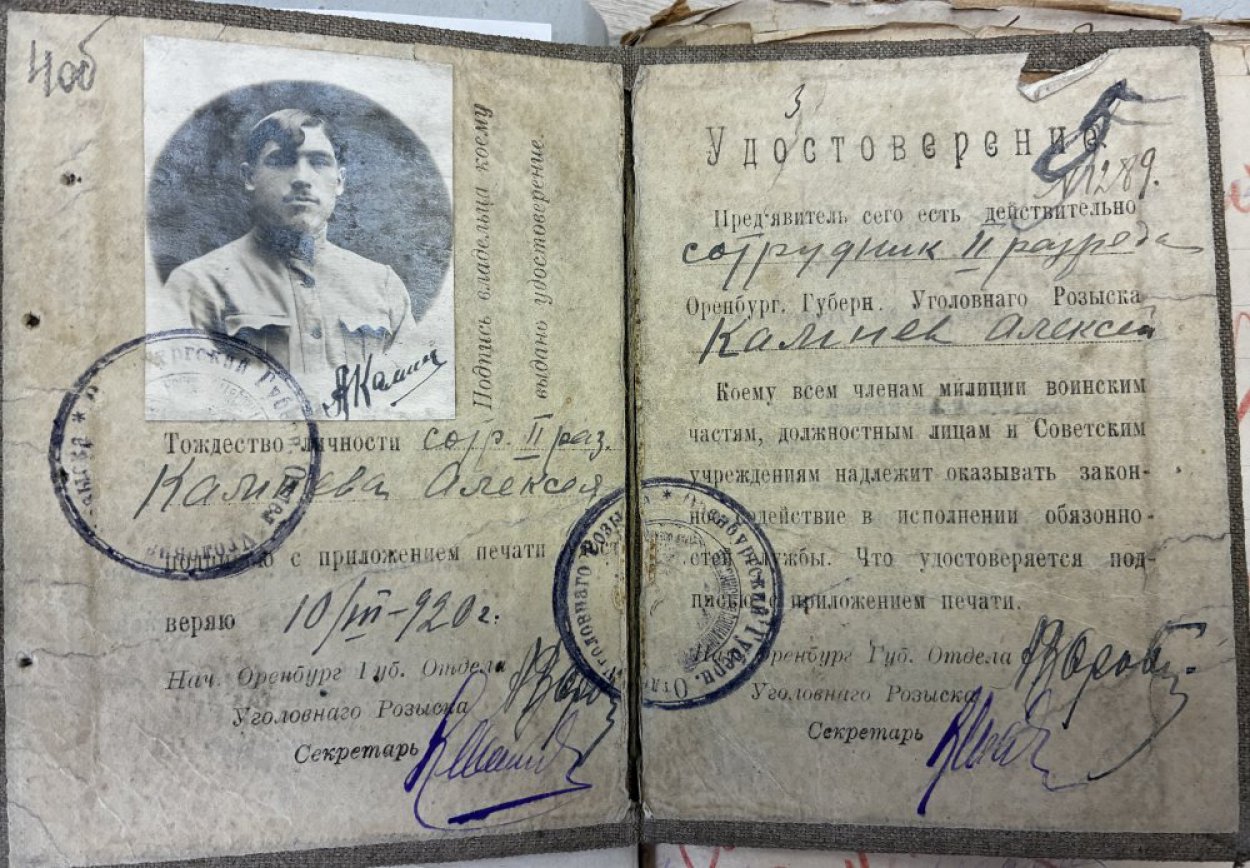 40б
Подпись владельца коему
выдано удостоверение.
А Калин
Тождество личности сотр. II раз.
Калинева Алексея
подписью с приложением печати
веряю 10/III-920 г.
Нач. Оренбург Губ. Отдела
Уголовнаго Розыска
Секретарь
3
Удостоверение
№1289.
Пред'явитель сего есть действительно
сотрудник II разряда
Оренбург. Губерн. Уголовнаго Розыска
Калинев Алексей
Коему всем членам милиции воинским
частям, должностным лицам и Советским
учреждениям надлежит оказывать закон-
ное содействие в исполнении обязонно-
стей службы. Что удостоверяется под-
писью с приложением печати.
Нач. Оренбург Губ. Отдела
Уголовнаго Розыска
Секретарь
Оренбургский Губерн. Отдел Уголовнаго Розыска